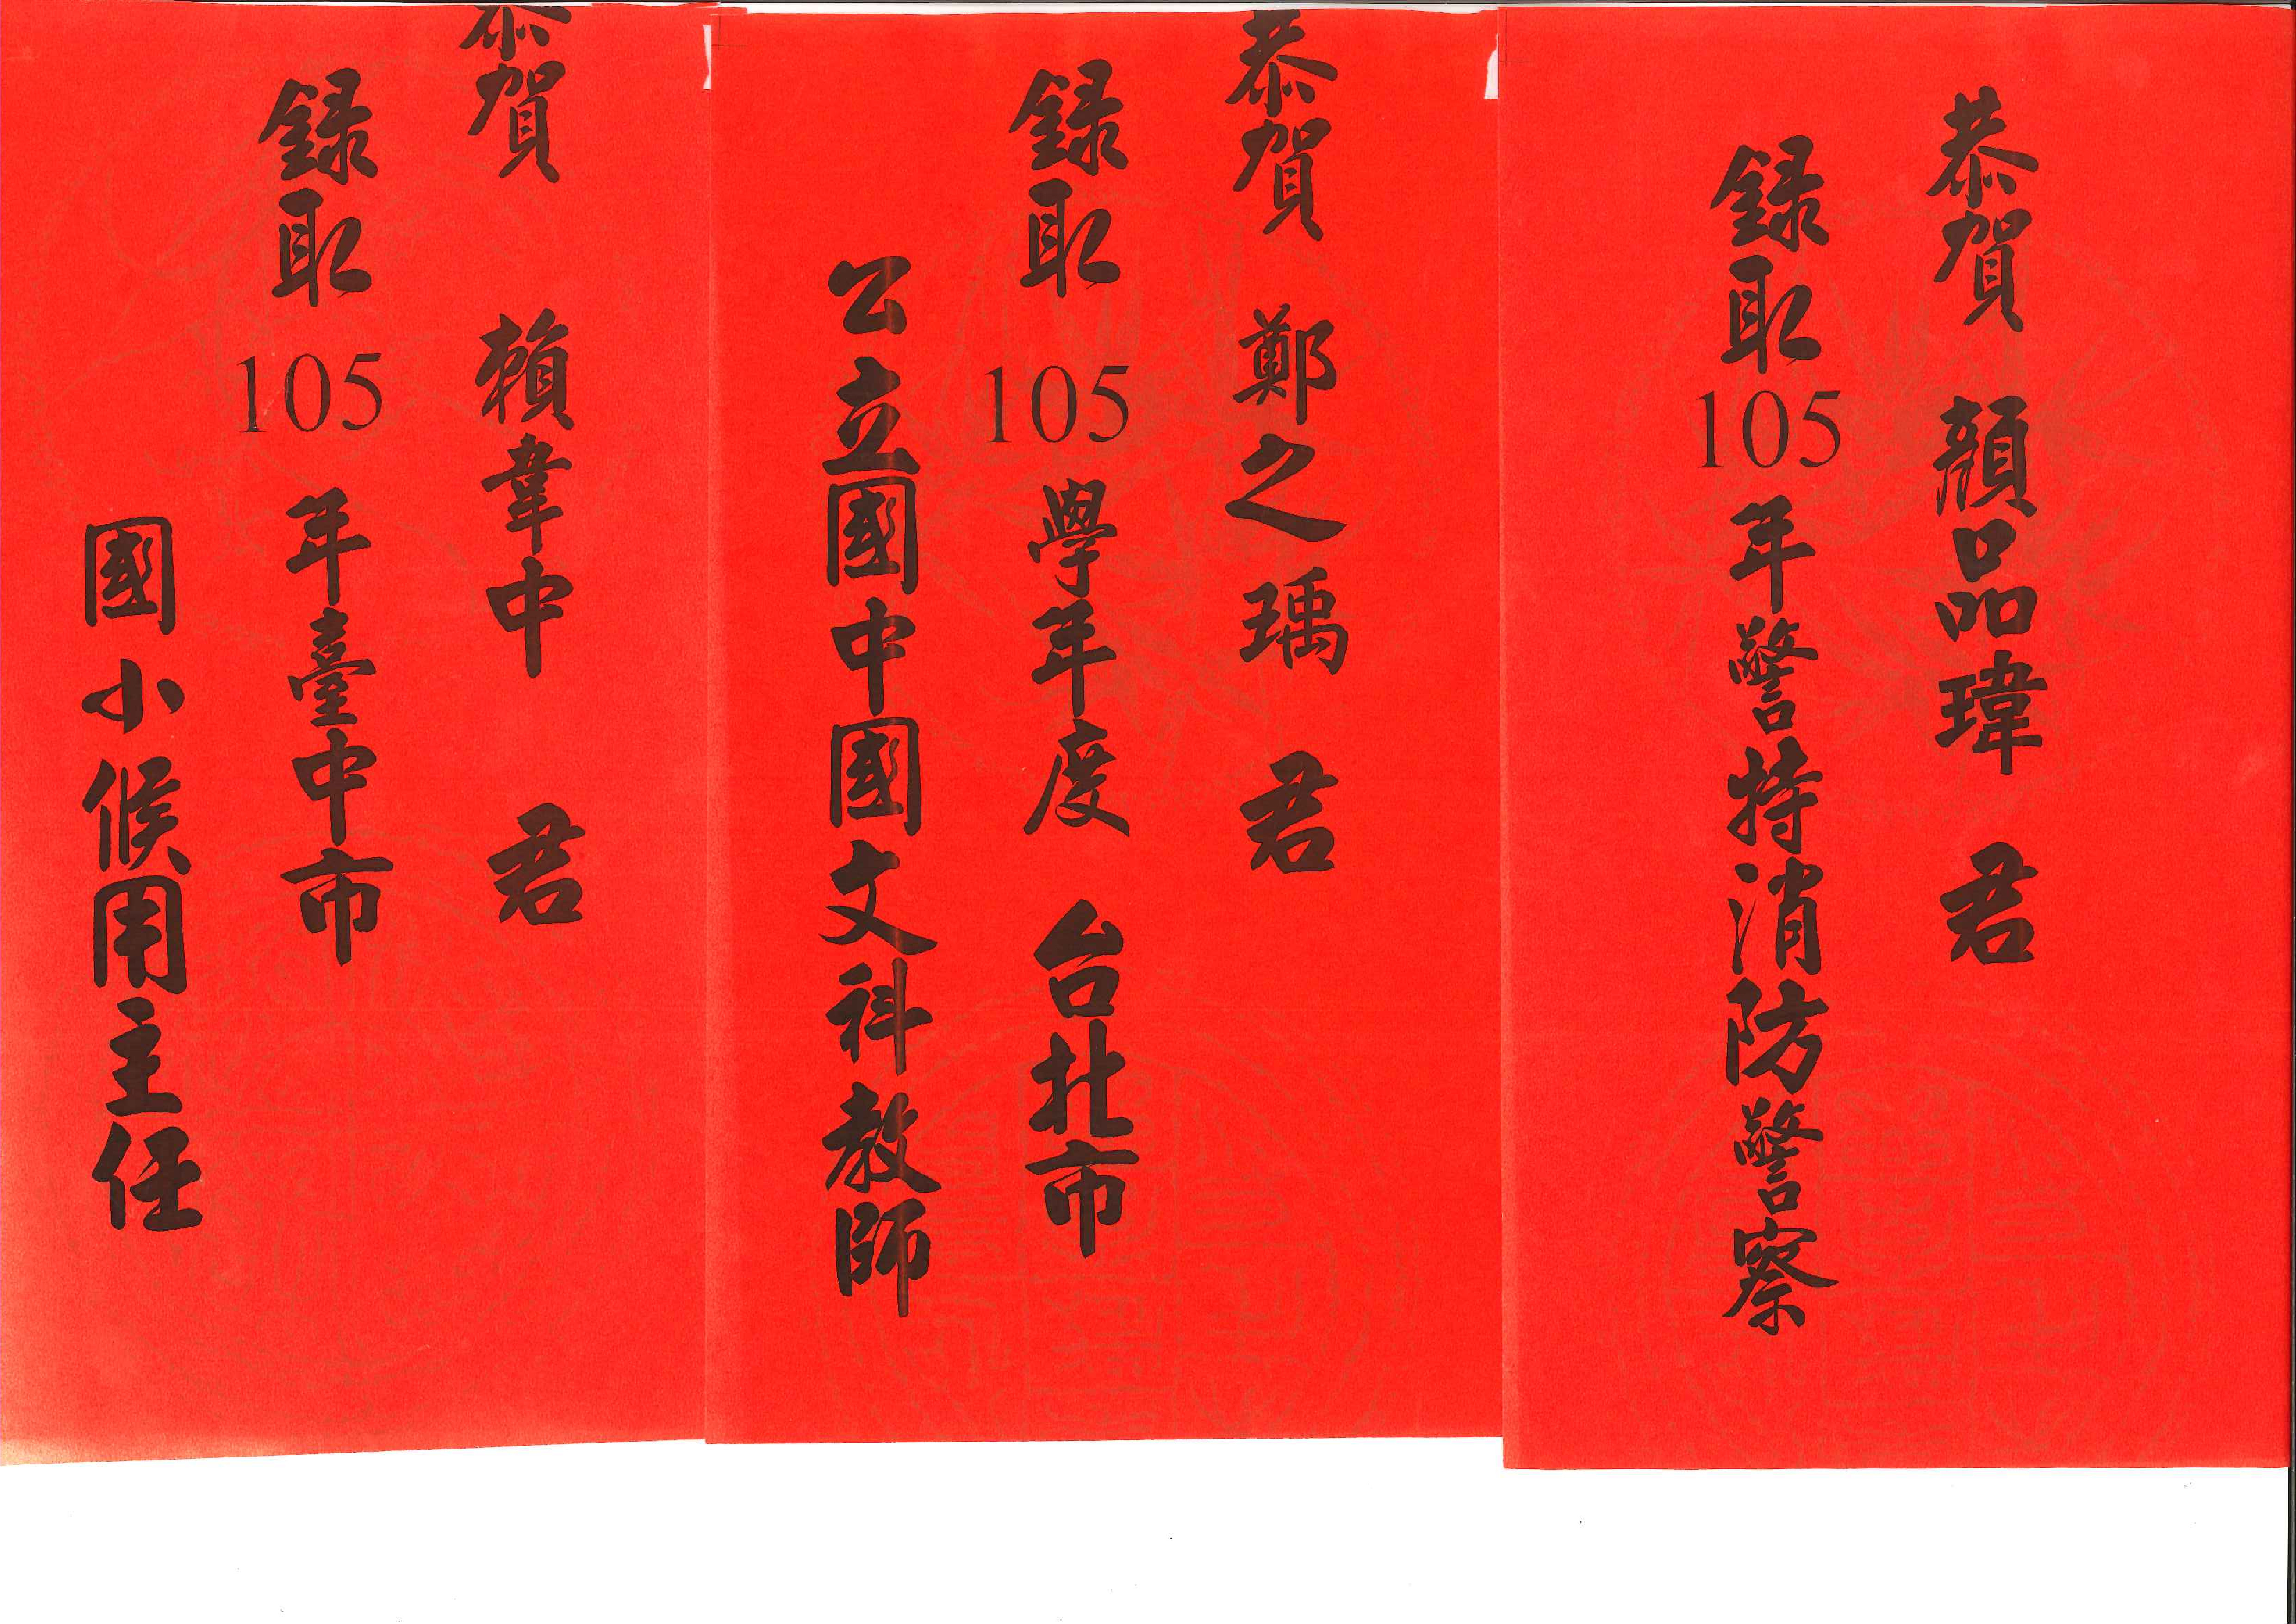 恭賀 顏品瑋 君
録取105年警特消防警察
恭賀 鄭之瑀 君
録取105學年度 台北市
公立國中國文科教師
恭賀 賴韋中 君
録取105年臺中市
國小候用主任